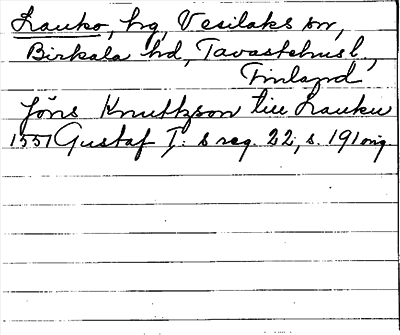 Lauko, hg, Vesilaks sn,
Birkala hd, Tavastehusl.,
Finland
Jöns Knuttzson till Lauku
1557 Gustaf I: s reg. 22, s. 191 orig.